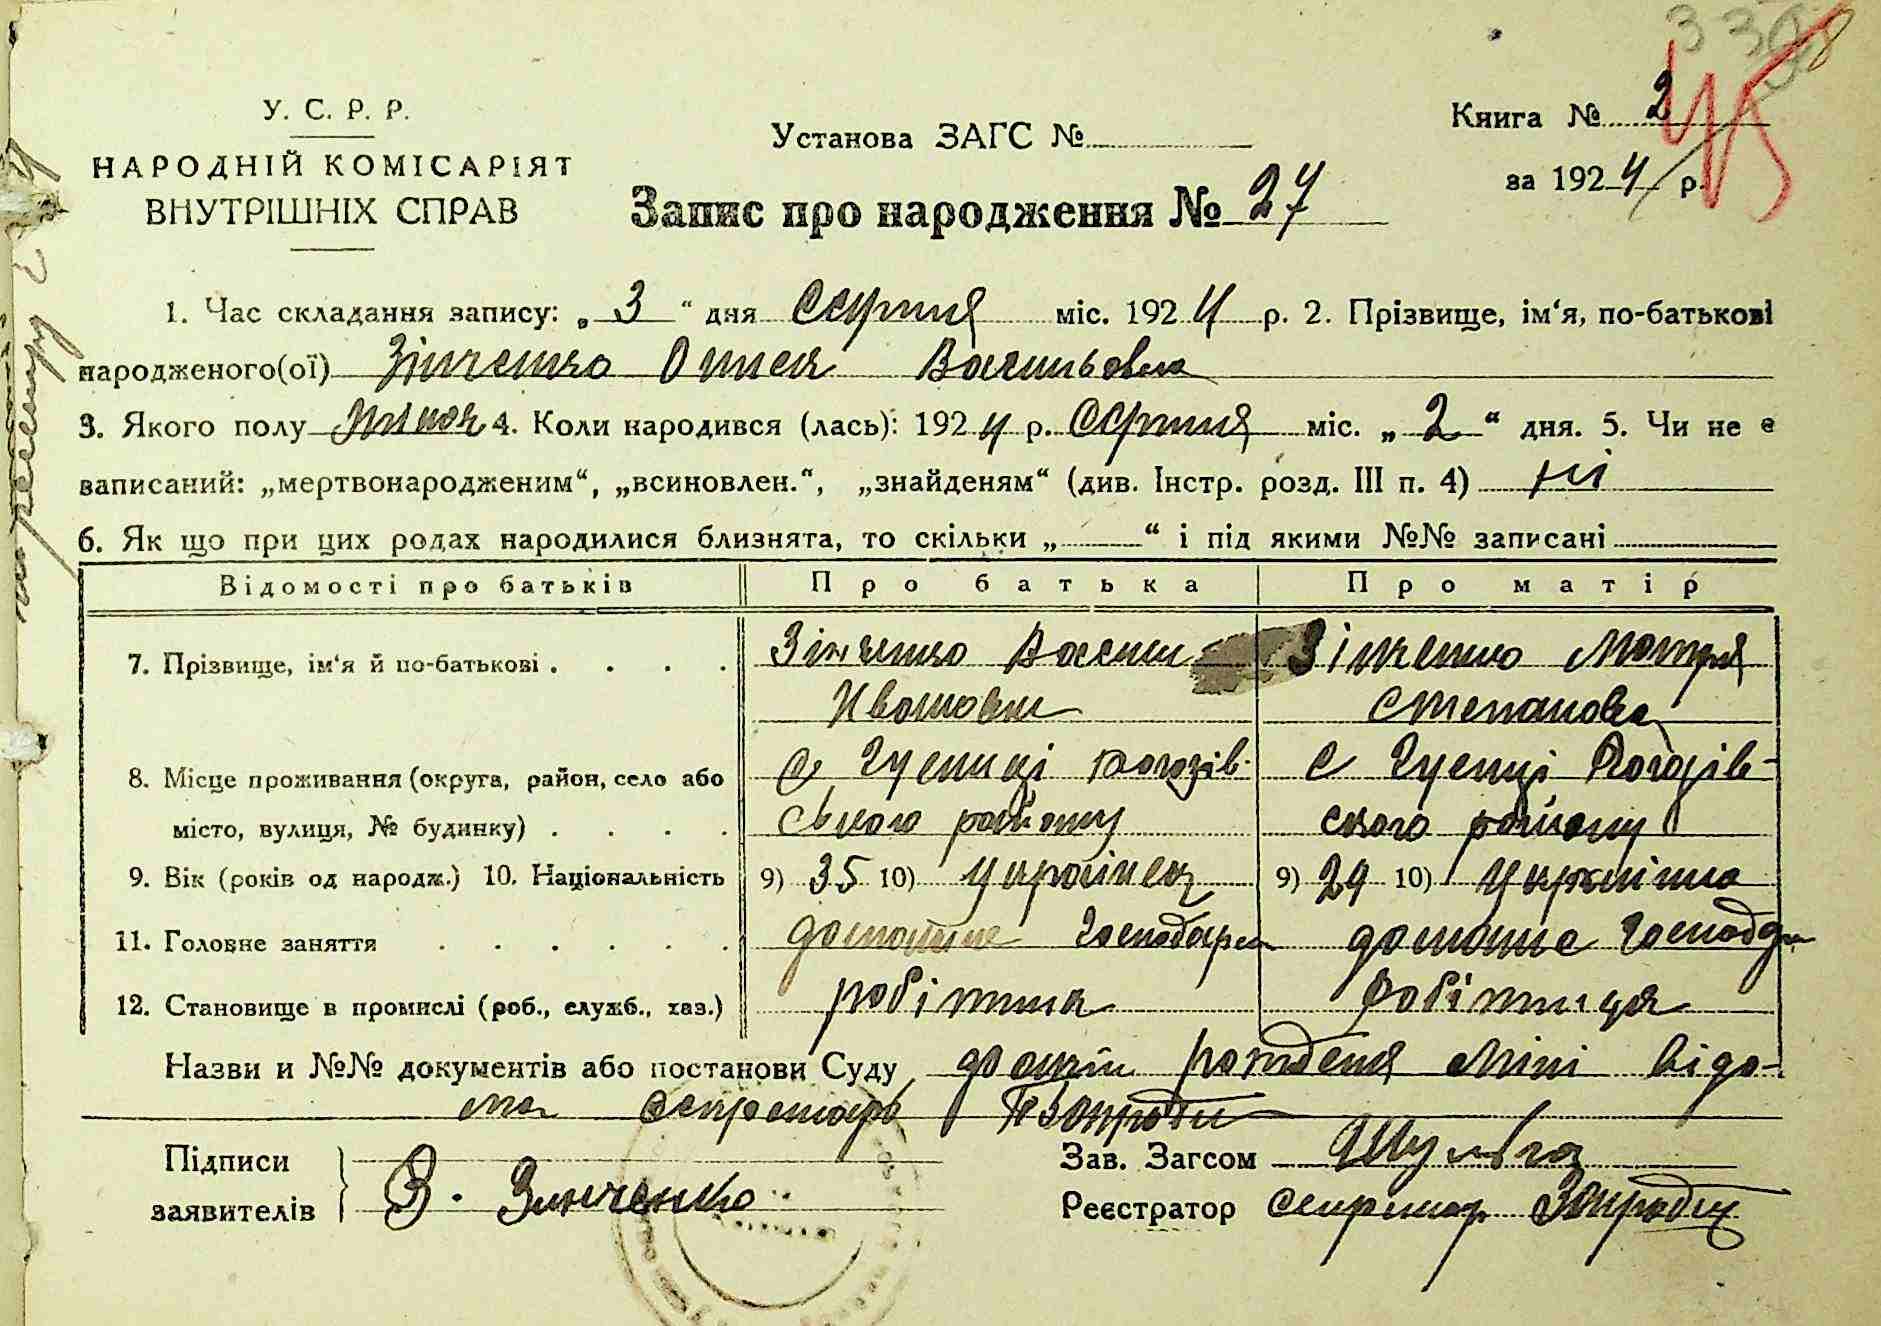 У. С. Р. Р.
НАРОДНІЙ КОМІСАРІЯТ
ВНУТРІШНІХ СПРАВ
Установа ЗАГС №
Запис про народження № 27
Книга № 2
за 1924 р.
45
1. Час складання запису: „3“ дня Серпня міс. 1924 р. 2. Прізвище, ім‘я, по-батькові
народженого(ої) Зінченко Васильовна
3. Якого полу 4. Коли народився (лась): 1924 р. Серпня міс. „2“ дня. 5. Чи не є
записаний: „мертвонародженим“, „всиновлен.“, „знайденям“ (див. Інстр. розд. III п. 4) ні
6. Як що при цих родах народилися близнята, то скільки „ “ і під якими №№ записані
Відомості про батьків Про батька Про матір
7. Прізвище, ім‘я й по-батькові . . . . Зінченко Зінченко Мотря
Степановна
8. Місце проживання (округа, район, село або с с
місто, вулиця, № будинку) . . . . ського району ского району
9. Вік (років од народж.) 10. Національність 9) 35 10) Українец 9) 29 10) Українка
11. Головне заняття . . . . . . домашне Господар домашне Господар
12. Становище в промислі (роб., служб., хаз.) робітник робітниця
Назви и №№ документів або постанови Суду мині відо-
ма Секретарь
Підписи
заявителів З. Зинченко
Зав. Загсом Шульга
Реєстратор Секретар